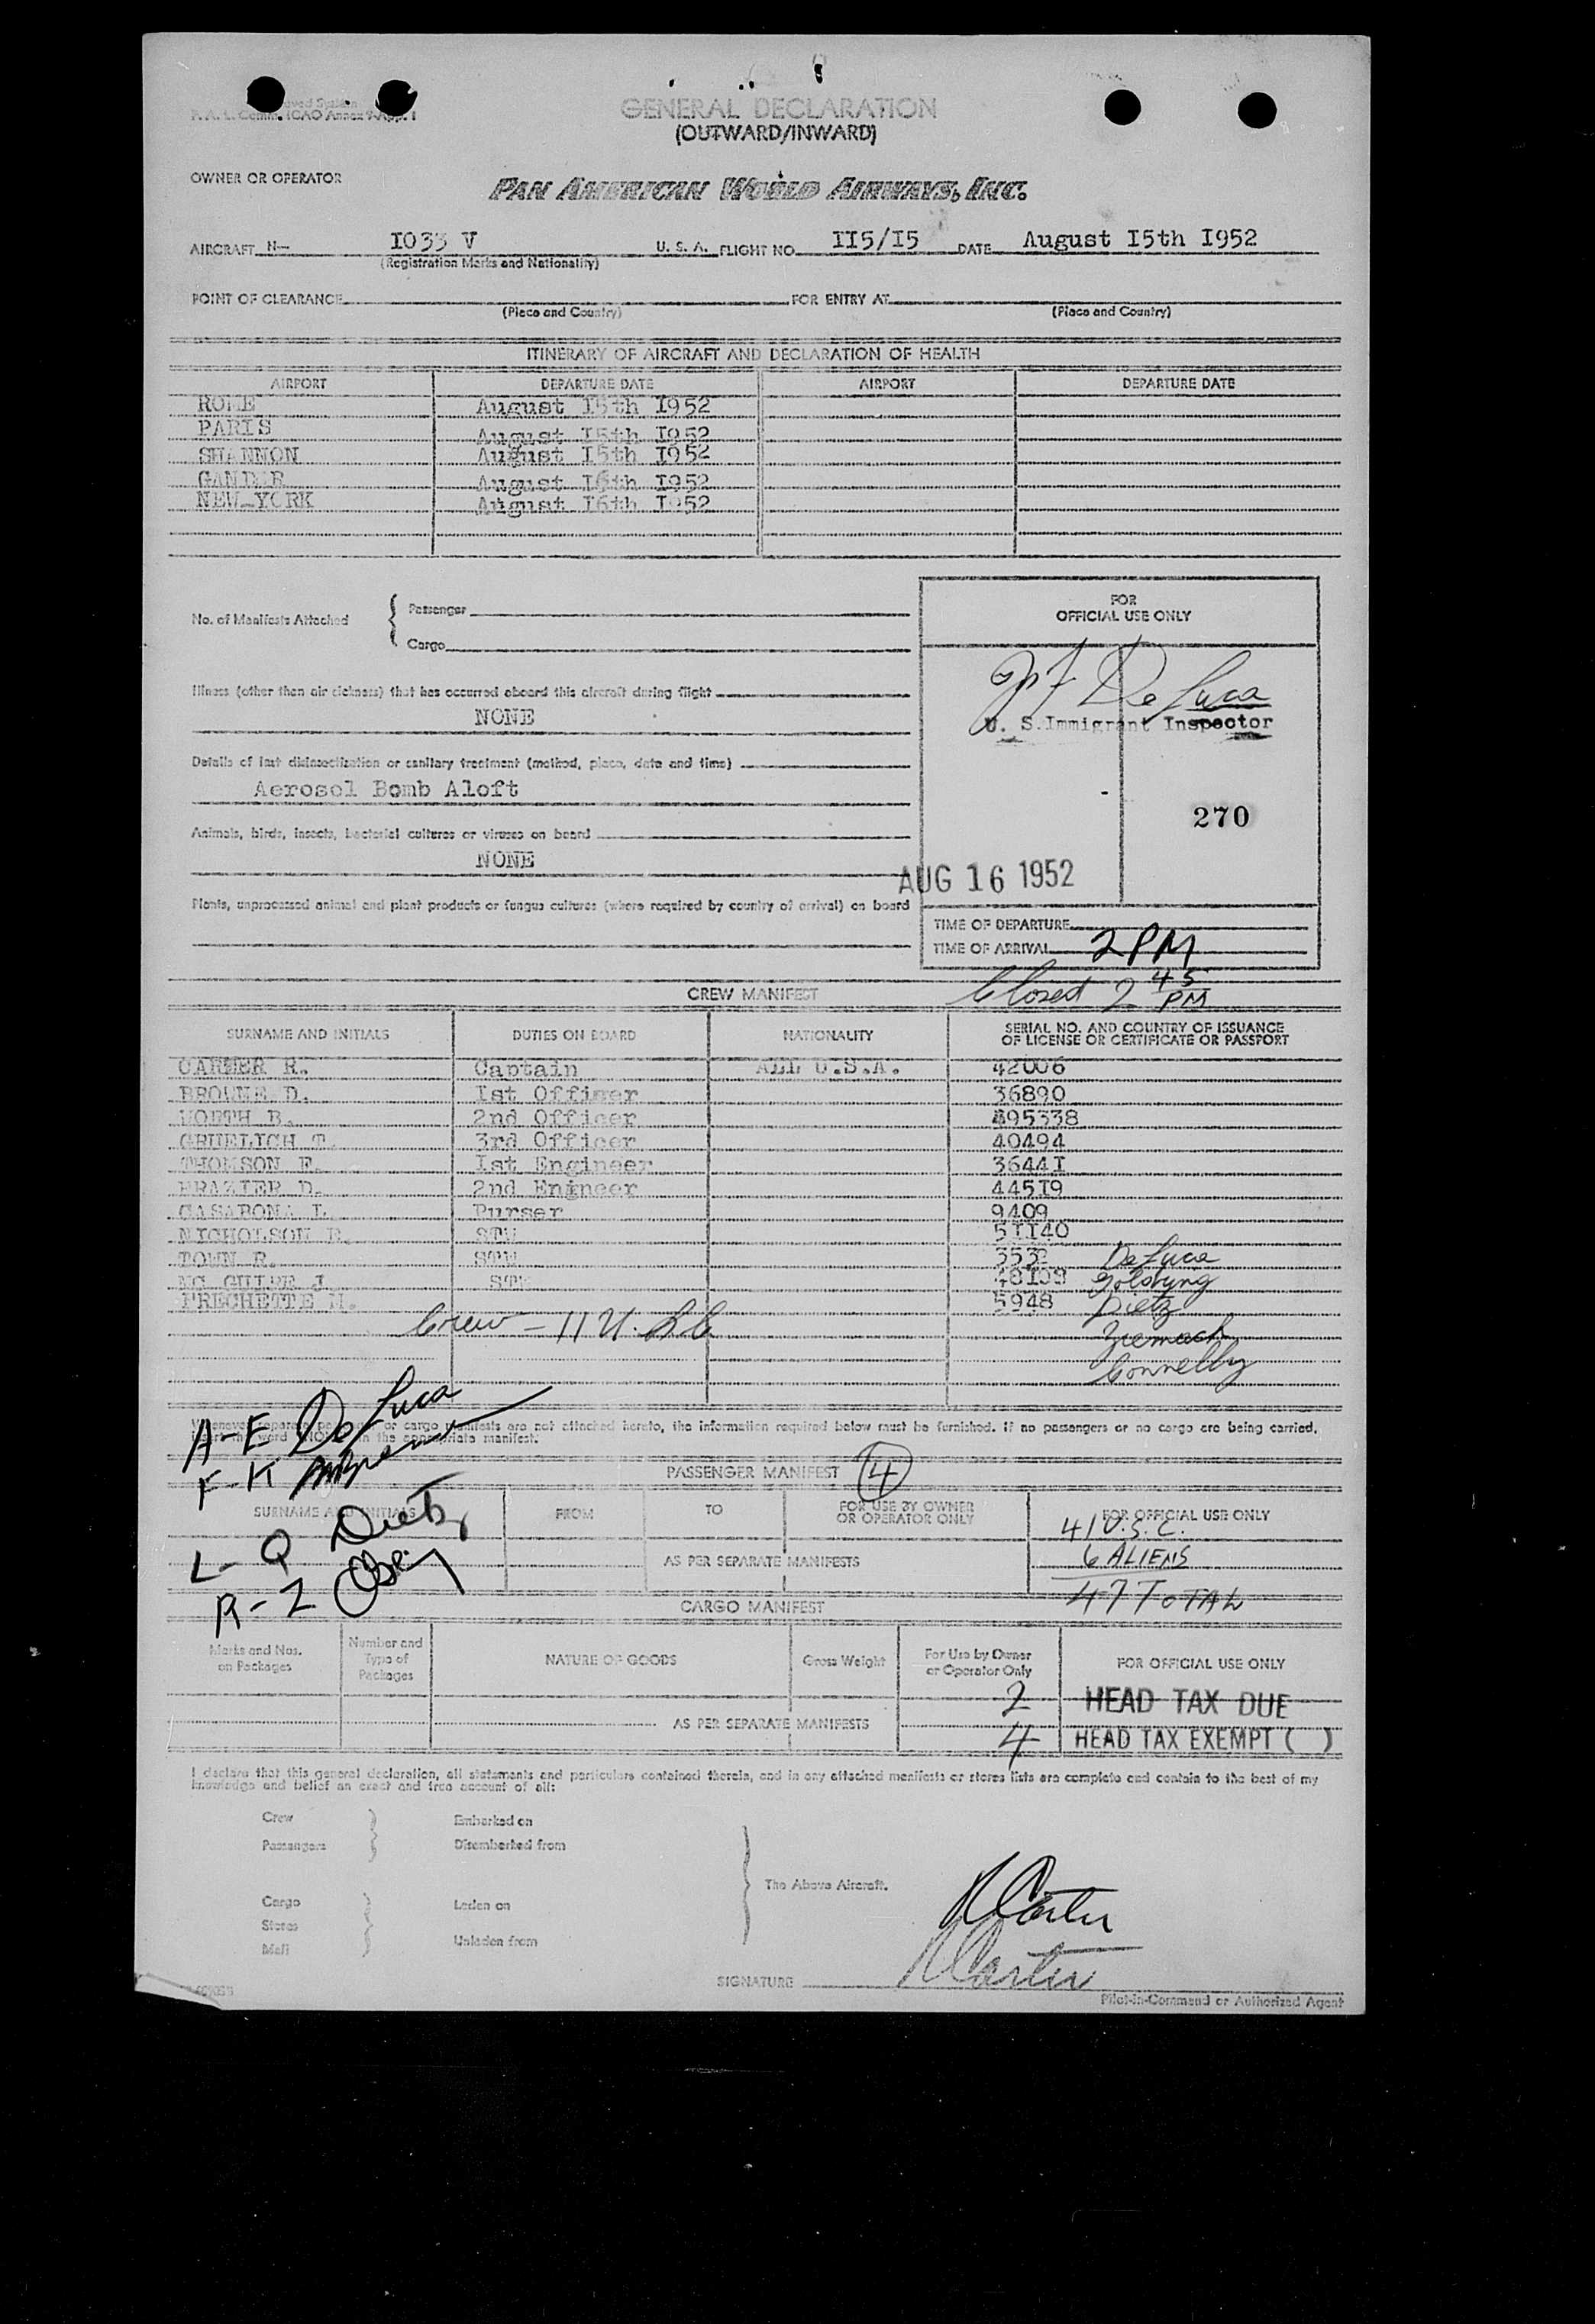 P. A. L. Comm. ICAO Annex 9-App. 1
GENERAL DECLARATION
(OUTWARD/INWARD)
OWNER OR OPERATOR
PAN AMERICAN WORLD AIRWAYS, INC.
AIRCRAFT N— I033 V U. S. A. FLIGHT NO. II5/I5 DATE August I5th I952
(Registration Marks and Nationality)
POINT OF CLEARANCE FOR ENTRY AT
(Place and Country) (Place and Country)
ITINERARY OF AIRCRAFT AND DECLARATION OF HEALTH
AIRPORT DEPARTURE DATE AIRPORT DEPARTURE DATE
ROME August I5th I952
PARIS August I5th I952
SHANNON August I5th I952
GANDER August I6th I952
NEW-YORK August I6th I952
No. of Manifests Attached { Passenger
Cargo
FOR
OFFICIAL USE ONLY
De Luca
U. S. Immigrant Inspector
Illness (other than air sickness) that has occurred aboard this aircraft during flight
NONE
Details of last disinsectization or sanitary treatment (method, place, date and time)
Aerosol Bomb Aloft
270
Animals, birds, insects, bacterial cultures or viruses on board
NONE
AUG 16 1952
Plants, unprocessed animal and plant products or fungus cultures (where required by country of arrival) on board
TIME OF DEPARTURE
TIME OF ARRIVAL 2 PM
Closed 2 45 PM
CREW MANIFEST
SURNAME AND INITIALS DUTIES ON BOARD NATIONALITY SERIAL NO. AND COUNTRY OF ISSUANCE
OF LICENSE OR CERTIFICATE OR PASSPORT
CARTER R. Captain ALL U.S.A. 42006
BROWNE D. Ist Officer 36890
NORTH B. 2nd Officer 495338
GRUELICH T. 3rd Officer 40494
THOMSON F. Ist Engineer 3644I
FRAZIER D. 2nd Engineer 445I9
CASABONA L. Purser 9409
NICHOLSON STW 5II40
TOWN R. STW De Luca
MC GUIRE J. STW
FRECHETTE M. 5948 Dietz
Crew - 11 U.S.C.
Connelly
Whenever separate passenger or cargo manifests are not attached hereto, the information required below must be furnished. If no passengers or no cargo are being carried,
insert the word "NONE" in the appropriate manifest.
A-E De Luca
F-K
L-Q Dietz
R-Z
PASSENGER MANIFEST 4
SURNAME AND INITIALS FROM TO FOR USE BY OWNER
OR OPERATOR ONLY FOR OFFICIAL USE ONLY
41 U.S.C.
AS PER SEPARATE MANIFESTS 6 ALIENS
47 TOTAL
CARGO MANIFEST
Marks and Nos.
on Packages Number and
Type of
Packages NATURE OF GOODS Gross Weight For Use by Owner
or Operator Only FOR OFFICIAL USE ONLY
2 HEAD TAX DUE
AS PER SEPARATE MANIFESTS 4 HEAD TAX EXEMPT ( )
I declare that this general declaration, all statements and particulars contained therein, and in any attached manifests or stores lists are complete and contain to the best of my
knowledge and belief an exact and true account of all:
Crew Embarked on
Passengers Disembarked from
The Above Aircraft.
Cargo Laden on
Stores
Mail Unladen from
R Carter
SIGNATURE R Carter
Pilot-in-Command or Authorized Agent